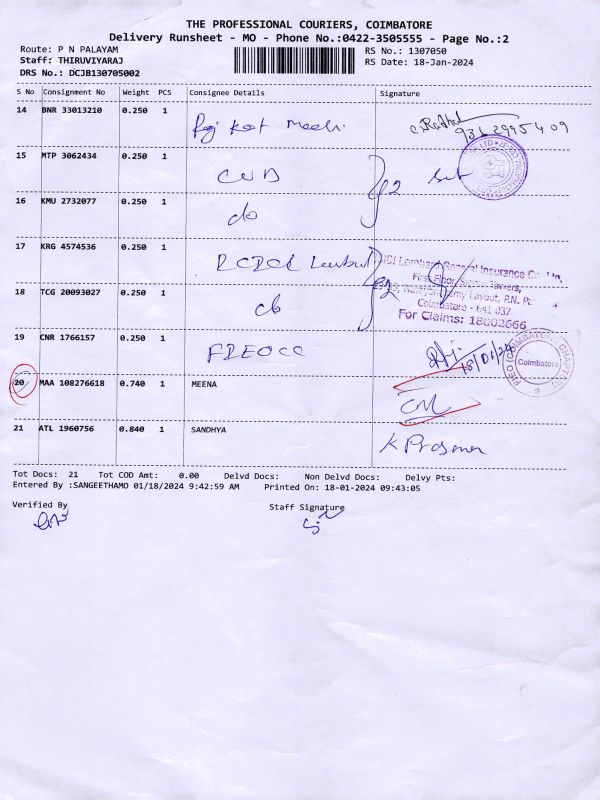 THE PROFESSIONAL COURIERS, COIMBATORE
Delivery Runsheet - MO - Phone No.:0422-3505555 - Page No.:2
Route: P N PALAYAM
RS No.: 1307050
Staff: THIRUVIYARAJ
RS Date: 18-Jan-2024
DRS No.: DCJB130705002
S No Consignment No Weight PCS Consignee Details Signature
14 BNR 33013210 0.250 1
15 MTP 3062434 0.250 1
CUB
16 KMU 2732077 0.250 1
do
17 KRG 4574536 0.250 1
ICICI Lombard General Insurance Co. Ltd,
First Floor, Towers,
Layout, P.N.
Coimbatore - 641 037
For Claims: 18002666
18 TCG 20093027 0.250 1
19 CNR 1766157 0.250 1
18/01/24
FIEO (COIMBATORE CHAPTER)
Coimbatore
20 MAA 108276618 0.740 1 MEENA
21 ATL 1960756 0.840 1 SANDHYA
K Prasanna
Tot Docs: 21 Tot COD Amt: 0.00 Delvd Docs: Non Delvd Docs: Delvy Pts:
Entered By :SANGEETHAMO 01/18/2024 9:42:59 AM Printed On: 18-01-2024 09:43:05
Verified By Staff Signature